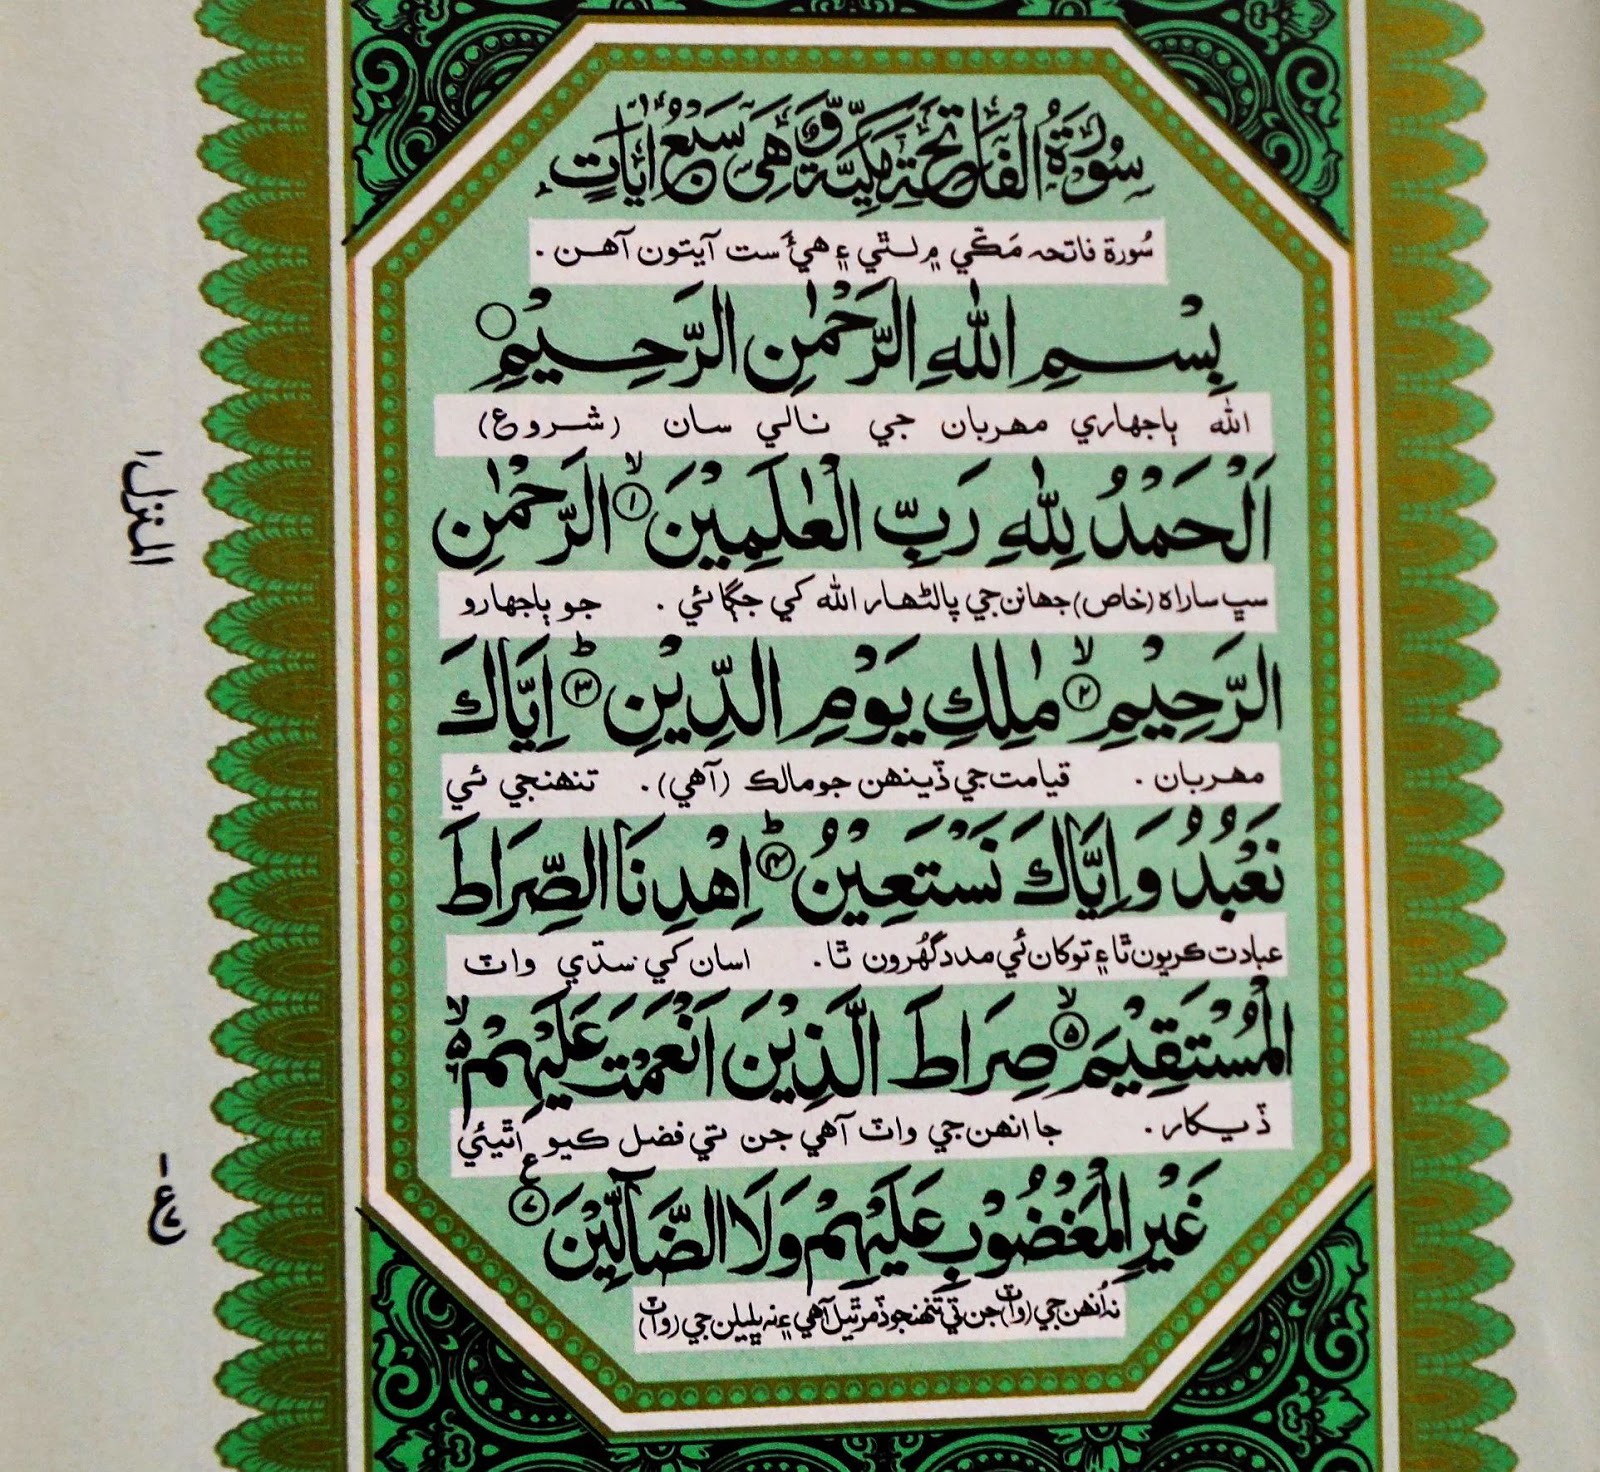 سُوْرَةُ الْفَاتِحَةِ مَكِّيَّةٌ وَّهِىَ سَبْعُ اٰيَاتٍ
سُورة فاتحہ مَڪّي ۾ لٿي ۽ هيءَ ست آيتون آهن .
بِسْمِ اللهِ الرَّحْمٰنِ الرَّحِيْمِ
الله ٻاجهاري مهربان جي نالي سان (شروع)
اَلْحَمْدُ لِلّٰهِ رَبِّ الْعٰلَمِيْنَ ۙ﴿۱﴾ الرَّحْمٰنِ
سڀ ساراه (خاص) جهانن جي پالڻهار الله کي جڳائي . جو ٻاجهارو
الرَّحِيْمِ ۙ﴿۲﴾ مٰلِكِ يَوْمِ الدِّيْنِ ؕ﴿۳﴾ اِيَّاكَ
مهربان . قيامت جي ڏينهن جو مالڪ (آهي) . تنهنجي ئي
نَعْبُدُ وَاِيَّاكَ نَسْتَعِيْنُ ؕ﴿۴﴾ اِهْدِنَا الصِّرَاطَ
عبادت ڪريون ٿا ۽ توکان ئي مدد گهُرون ٿا . اسان کي سڌي واٽ
الْمُسْتَقِيْمَ ۙ﴿۵﴾ صِرَاطَ الَّذِيْنَ اَنْعَمْتَ عَلَيْهِمْ ۙ۬ ۶
ڏيکار . جا انهن جي واٽ آهي جن تي فضل ڪيو اٿيئي
غَيْرِ الْمَغْضُوْبِ عَلَيْهِمْ وَلَا الضَّآلِّيْنَ ﴿۷﴾ ع
نہ اُنهن جي (واٽ) جن تي تنهنجو ڏمر ٿيل آهي ۽ نہ ڀليلن جي (واٽ)
المنزل ۱